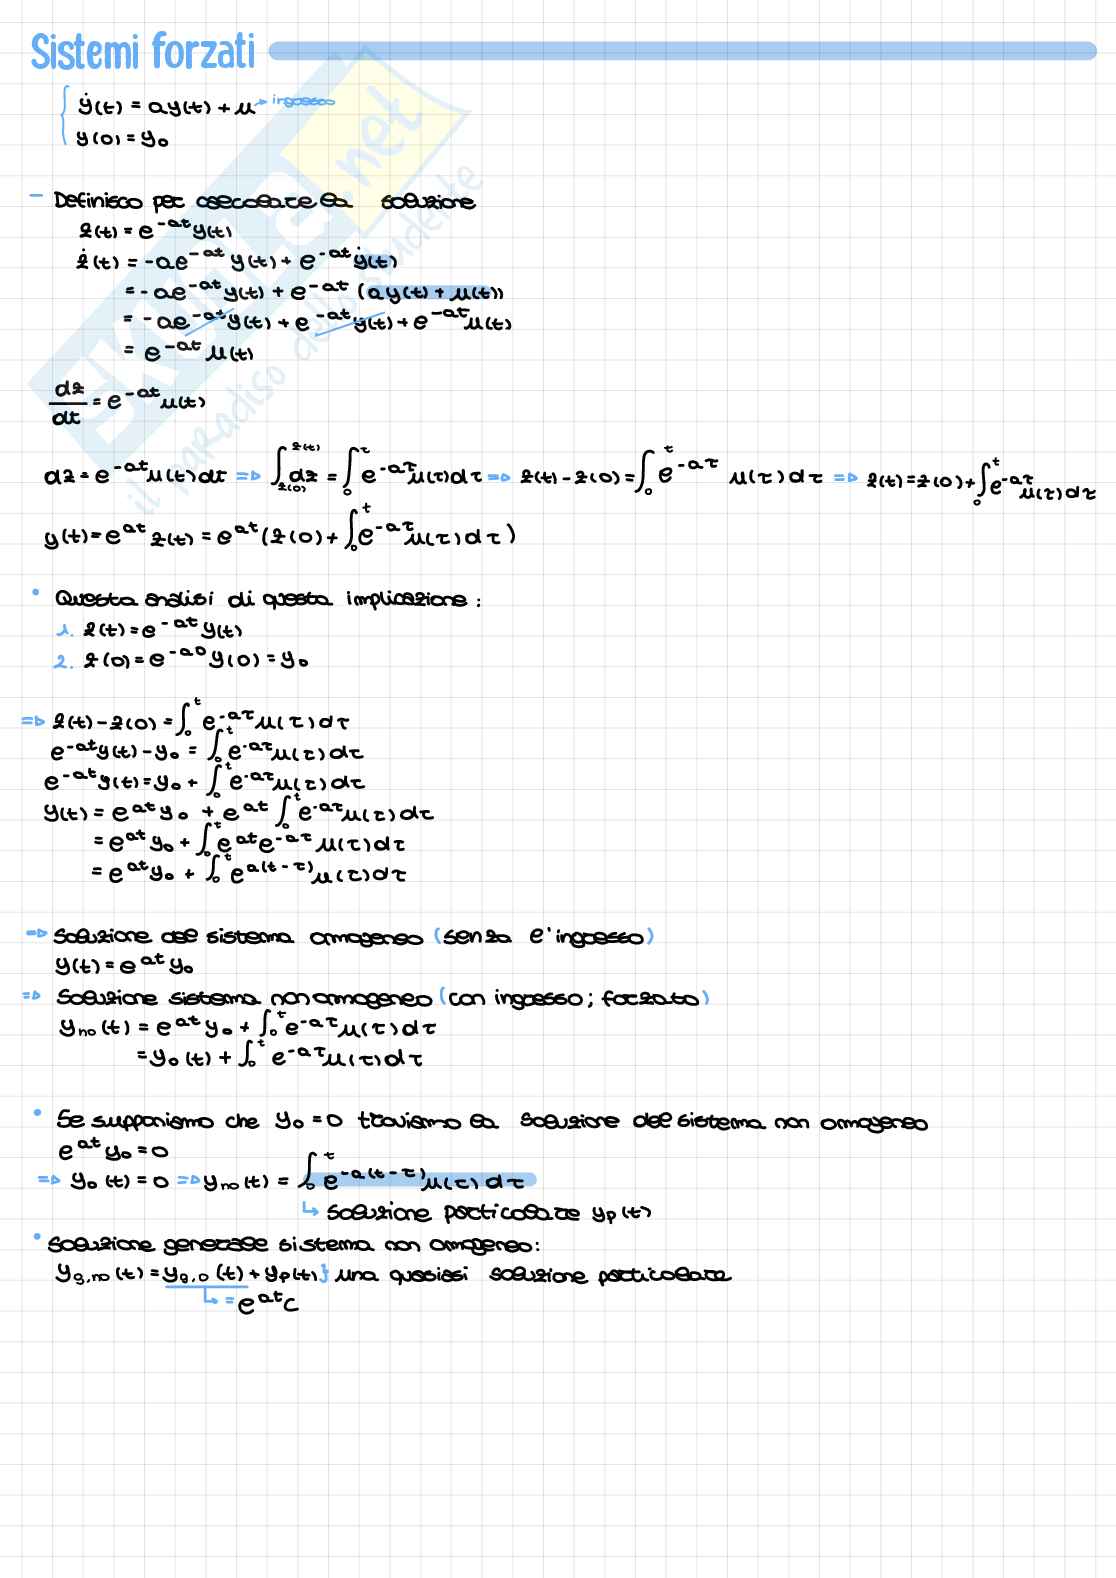 Sistemi forzati
ẏ(t) = ay(t) + u → ingresso
y(0) = y₀
– Definisco per calcolare la soluzione
z(t) = e^{-at}y(t)
ż(t) = -ae^{-at} y(t) + e^{-at}ẏ(t)
= -ae^{-at}y(t) + e^{-at} (ay(t) + u(t))
= -ae^{-at}y(t) + e^{-at}y(t) + e^{-at}u(t)
= e^{-at} u(t)
dz/dt = e^{-at}u(t)
dz = e^{-at}u(t)dt ⇒ ∫_{z(0)}^{z(t)} dz = ∫_0^τ e^{-aτ}u(τ)dτ ⇒ z(t) - z(0) = ∫_0^t e^{-aτ} u(τ)dτ ⇒ z(t) = z(0) + ∫_0^t e^{-aτ}u(τ)dτ
y(t) = e^{at} z(t) = e^{at}(z(0) + ∫_0^t e^{-aτ}u(τ)dτ)
• Questa analisi di questa implicazione:
1. z(t) = e^{-at}y(t)
2. z(0) = e^{-a0}y(0) = y₀
⇒ z(t) - z(0) = ∫_0^t e^{-aτ}u(τ)dτ
e^{-at}y(t) - y₀ = ∫_0^t e^{-aτ}u(τ)dτ
e^{-at}y(t) = y₀ + ∫_0^t e^{-aτ}u(τ)dτ
y(t) = e^{at}y₀ + e^{at} ∫_0^t e^{-aτ}u(τ)dτ
= e^{at}y₀ + ∫_0^t e^{at}e^{-aτ}u(τ)dτ
= e^{at}y₀ + ∫_0^t e^{a(t-τ)}u(τ)dτ
⇒ Soluzione del sistema omogeneo (senza l'ingresso)
y(t) = e^{at}y₀
⇒ Soluzione sistema non omogeneo (con ingresso; forzato)
y_{no}(t) = e^{at}y₀ + ∫_0^t e^{-aτ}u(τ)dτ
= y₀(t) + ∫_0^t e^{-aτ}u(τ)dτ
• Se supponiamo che y₀ = 0 troviamo la soluzione del sistema non omogeneo
e^{at}y₀ = 0
⇒ y₀(t) = 0 ⇒ y_{no}(t) = ∫_0^t e^{-a(t-τ)}u(τ)dτ
↳ soluzione particolare y_p(t)
• Soluzione generale sistema non omogeneo:
y_{g,no}(t) = y_{g,o}(t) + y_p(t)} una qualsiasi soluzione particolare
↳ = e^{at}c
SKUOLA.net
il paradiso dello studente